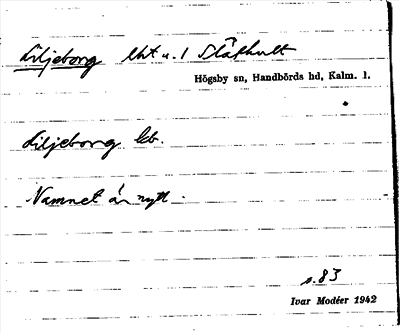 Liljeborg lht u. 1 Slåthult
Högsby sn, Handbörds hd, Kalm. l.
Liljeborg lb.
Namnet är nytt.
s. 83
Ivar Modéer 1942